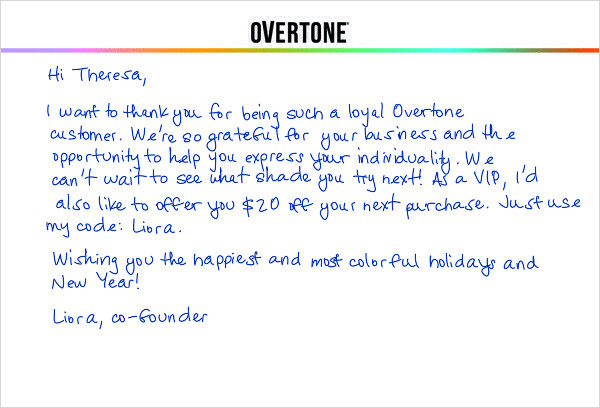 OVERTONE
Hi Theresa,
I want to thank you for being such a loyal Overtone
customer. We're so grateful for your business and the
opportunity to help you express your individuality. We
can't wait to see what shade you try next! As a VIP, I'd
also like to offer you $20 off your next purchase. Just use
my code: Liora.
Wishing you the happiest and most colorful holidays and
New Year!
Liora, co-founder